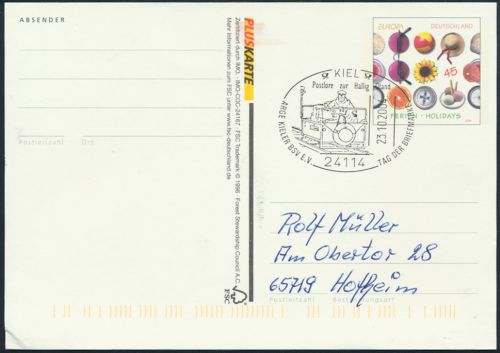 ABSENDER
Postleitzahl Ort
PLUSKARTE
Zertifiziert durch IMO, IMO-COC-24167 · FSC Trademark © 1996 · Forest Stewardship Council A.C.
Mehr Informationen zum FSC unter www.fsc-deutschland.de
FSC
EUROPA DEUTSCHLAND
45
FERIEN · HOLIDAYS
KIEL
Postlore zur Hallig
23.10.
24114
ARGE KIELER BSV E.V.
TAG DER BRIEFMARKE
Rolf Müller
Am Obertor 28
65719 Hofheim
Postleitzahl Bestimmungsort